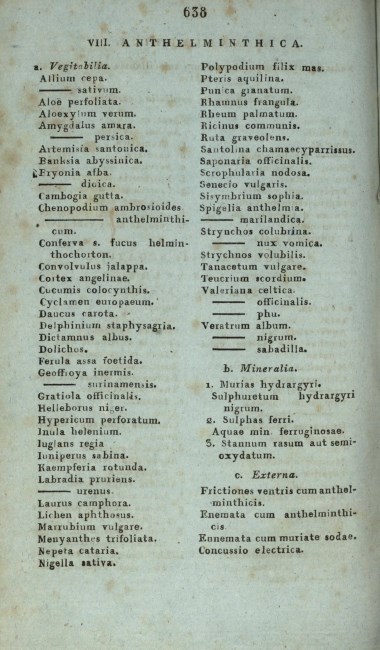 638
VIII. ANTHELMINTHICA.
a. Vegitabilia.
Allium cepa.
—— sativum.
Aloë perfoliata.
Aloexylum verum.
Amygdalus amara.
—— persica.
Artemisia santonica.
Banksia abyssinica.
Bryonia alba.
—— dioica.
Cambogia gutta.
Chenopodium ambrosioides
—— anthelminthi-
cum.
Conferva s. fucus helmin-
thochorton.
Convolvulus jalappa.
Cortex angelinae.
Cucumis colocynthis.
Cyclamen europaeum.
Daucus carota.
Delphinium staphysagria.
Dictamnus albus.
Dolichos.
Ferula assa foetida.
Geoffroya inermis.
—— surinamensis.
Gratiola officinalis.
Helleborus niger.
Hypericum perforatum.
Inula helenium.
Iuglans regia
Iuniperus sabina.
Kaempferia rotunda.
Labradia pruriens.
—— urenus.
Laurus camphora.
Lichen aphthosus.
Marrubium vulgare.
Menyanthes trifoliata.
Nepeta cataria.
Nigella sativa.
Polypodium filix mas.
Pteris aquilina.
Punica granatum.
Rhamnus frangula.
Rheum palmatum.
Ricinus communis.
Ruta graveolens.
Santolina chamaecyparissus.
Saponaria officinalis.
Scrophularia nodosa.
Senecio vulgaris.
Sisymbrium sophia.
Spigelia anthelmia.
—— marilandica.
Strynchos colubrina.
—— nux vomica.
Strychnos volubilis.
Tanacetum vulgare.
Teucrium scordium.
Valeriana celtica.
—— officinalis.
—— phu.
Veratrum album.
—— nigrum.
—— sabadilla.
b. Mineralia.
1. Murias hydrargyri.
Sulphuretum hydrargyri
nigrum.
2. Sulphas ferri.
Aquae min. ferruginosae.
3. Stannum rasum aut semi-
oxydatum.
c. Externa.
Frictiones ventris cum anthel-
minthicis.
Enemata cum anthelminthi-
cis
Ennemata cum muriate sodae.
Concussio electrica.